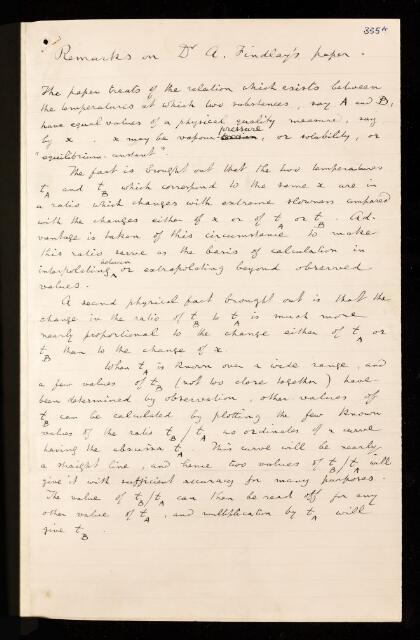 355
Remarks on Dr A. Findlay's paper.
The paper treats of the relation which exists between
the temperatures at which two substances, say A and B,
have equal values of a physical quality measure, say
pressure
by x. x may be vapour-tension, or solubility, or
"equilibrium-constant".
The fact is brought out that the two temperatures
tA and tB which correspond to the same x are in
a ratio which changes with extreme slowness compared
with the changes either of x or of tA or tB. Ad-
vantage is taken of this circumstance to make
this ratio serve as the basis of calculation in
between
interpolating, or extrapolating beyond observed
values.
A second physical fact brought out is that the
change in the ratio of tB to tA is much more
nearly proportional to the change either of tA or
tB than to the change of x.
When tA is known over a wide range, and
a few values of tB (not too close together) have
been determined by observation, other values of
tB can be calculated by plotting the few known
values of the ratio tB/tA as ordinates of a curve
having the abscissa tA. This curve will be nearly
a straight line, and hence two values of tB/tA will
give it with sufficient accuracy for many purposes.
The value of tB/tA can then be read off for any
other value of tA, and multiplication by tA will
give tB.